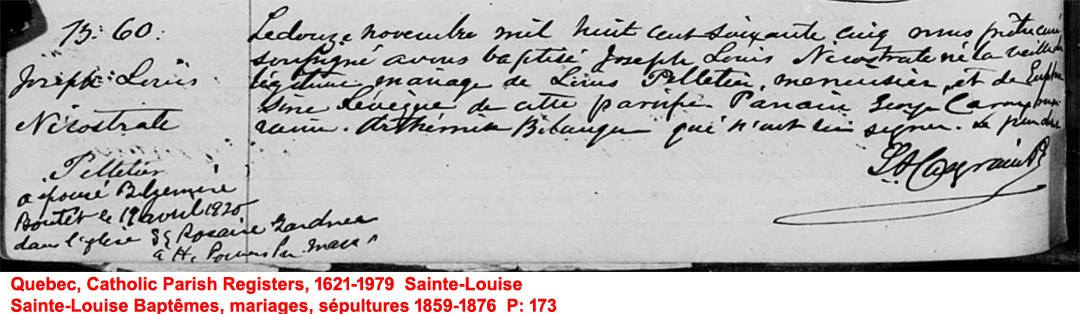 B. 60.
Joseph Louis
Nicostrate
Pelletier
a épousé Belzemire
Boutet le 19 avril 1920
dans l'église St Rosaire Gardner
Mass
Le douze novembre mil huit cent soixante cinq nous prêtre curé
soussigné avons baptisé Joseph Louis Nicostrate né la veille du
légitime mariage de Louis Pelletier, menuisier et de Euphro
sine Levêque de cette paroisse Parrain George Caron mar
raine Arthémise Bélanger qui n'ont su signer. Le père
Quebec, Catholic Parish Registers, 1621-1979 Sainte-Louise
Sainte-Louise Baptêmes, mariages, sépultures 1859-1876 P: 173